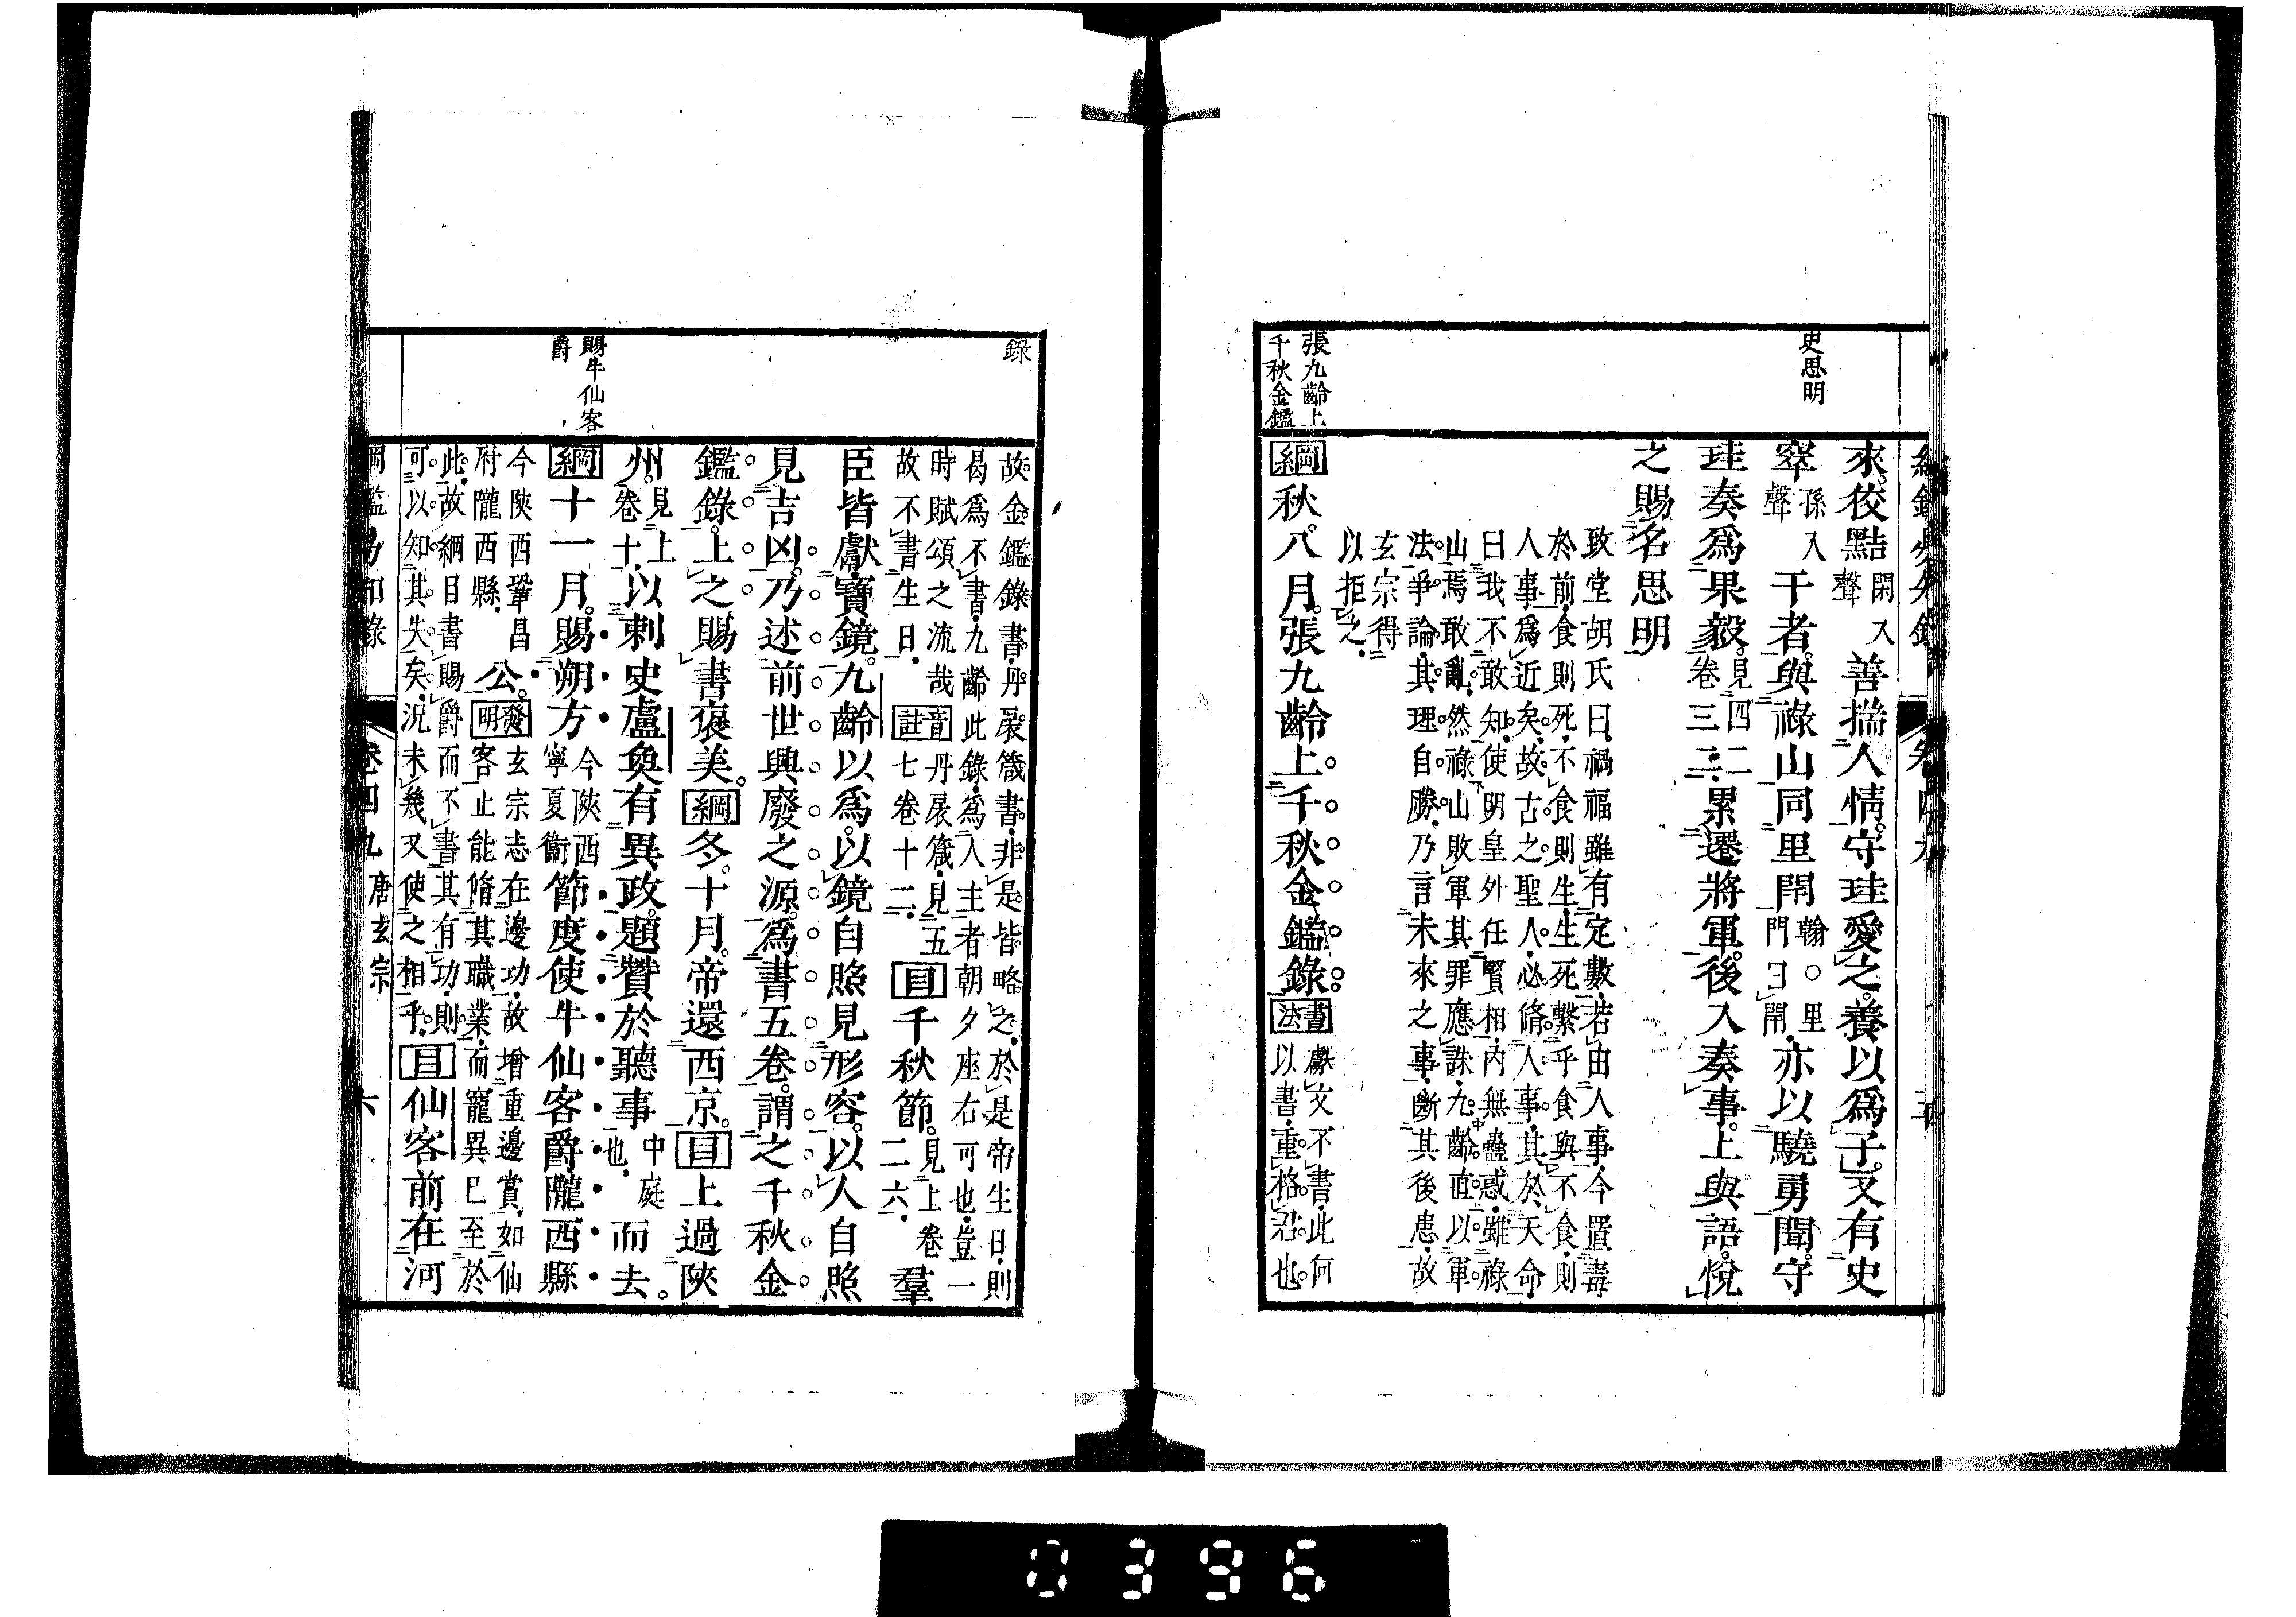 史思明
來。狡黠閑入聲善揣人情。守珪愛之。養以爲子。又有史
窣孫入聲干者。與祿山同里閈翰○里門曰閈。亦以驍勇聞。守
珪奏爲果毅。見四二卷三二。累遷將軍。後入奏事。上與語。悅
之賜名思明
致堂胡氏曰。禍福雖有定數。若由人事。今置毒
於前。食則死。不食則生。生死繫乎食與不食。則
人事爲近矣。故古之聖人。必脩人事。其於天命。
曰我不敢知。使明皇外任賢相。內無蠱惑。雖祿
山焉敢亂。然祿山敗軍其罪應誅。九齡直以軍
法爭論。其理自勝。乃言未來之事。斷其後患。故
玄宗得
以拒之。
張九齡上
千秋金鑑
綱秋。八月。張九齡上千秋金鑑錄。書法獻文不書。此何以書。重格沼也。
錄
故金鑑錄書。丹扆箴書。非是皆略之。於是帝生日。則
曷爲不書。九齡此錄。爲人主者朝夕座右可也。豈一
時賦頌之流哉音註丹扆箴。見五
故不書生日。七卷十二。目千秋節。見上卷二六。羣
臣皆獻寶鏡。九齡以爲。以鏡自照見形容。以人自照
見吉凶。乃述前世興廢之源。爲書五卷。謂之千秋金
鑑錄。上之。賜書褒美。綱冬。十月。帝還西京。目上過陝
州。見上卷十。以刺史盧奐有異政。題贊於聽事中庭也。而去。
賜牛仙客
爵
綱十一月。賜朔方今陝西寧夏衞節度使牛仙客爵隴西縣
今陝西鞏昌府隴西縣。公。發明玄宗志在邊功。故增重邊賞。如仙
客止能脩其職業。而寵異已至於
此。故綱目書賜爵而不書其有功。則
可以知其失矣。況未幾又使之相乎。目仙客前在河
綱鑑易知錄 卷四九 唐玄宗 六